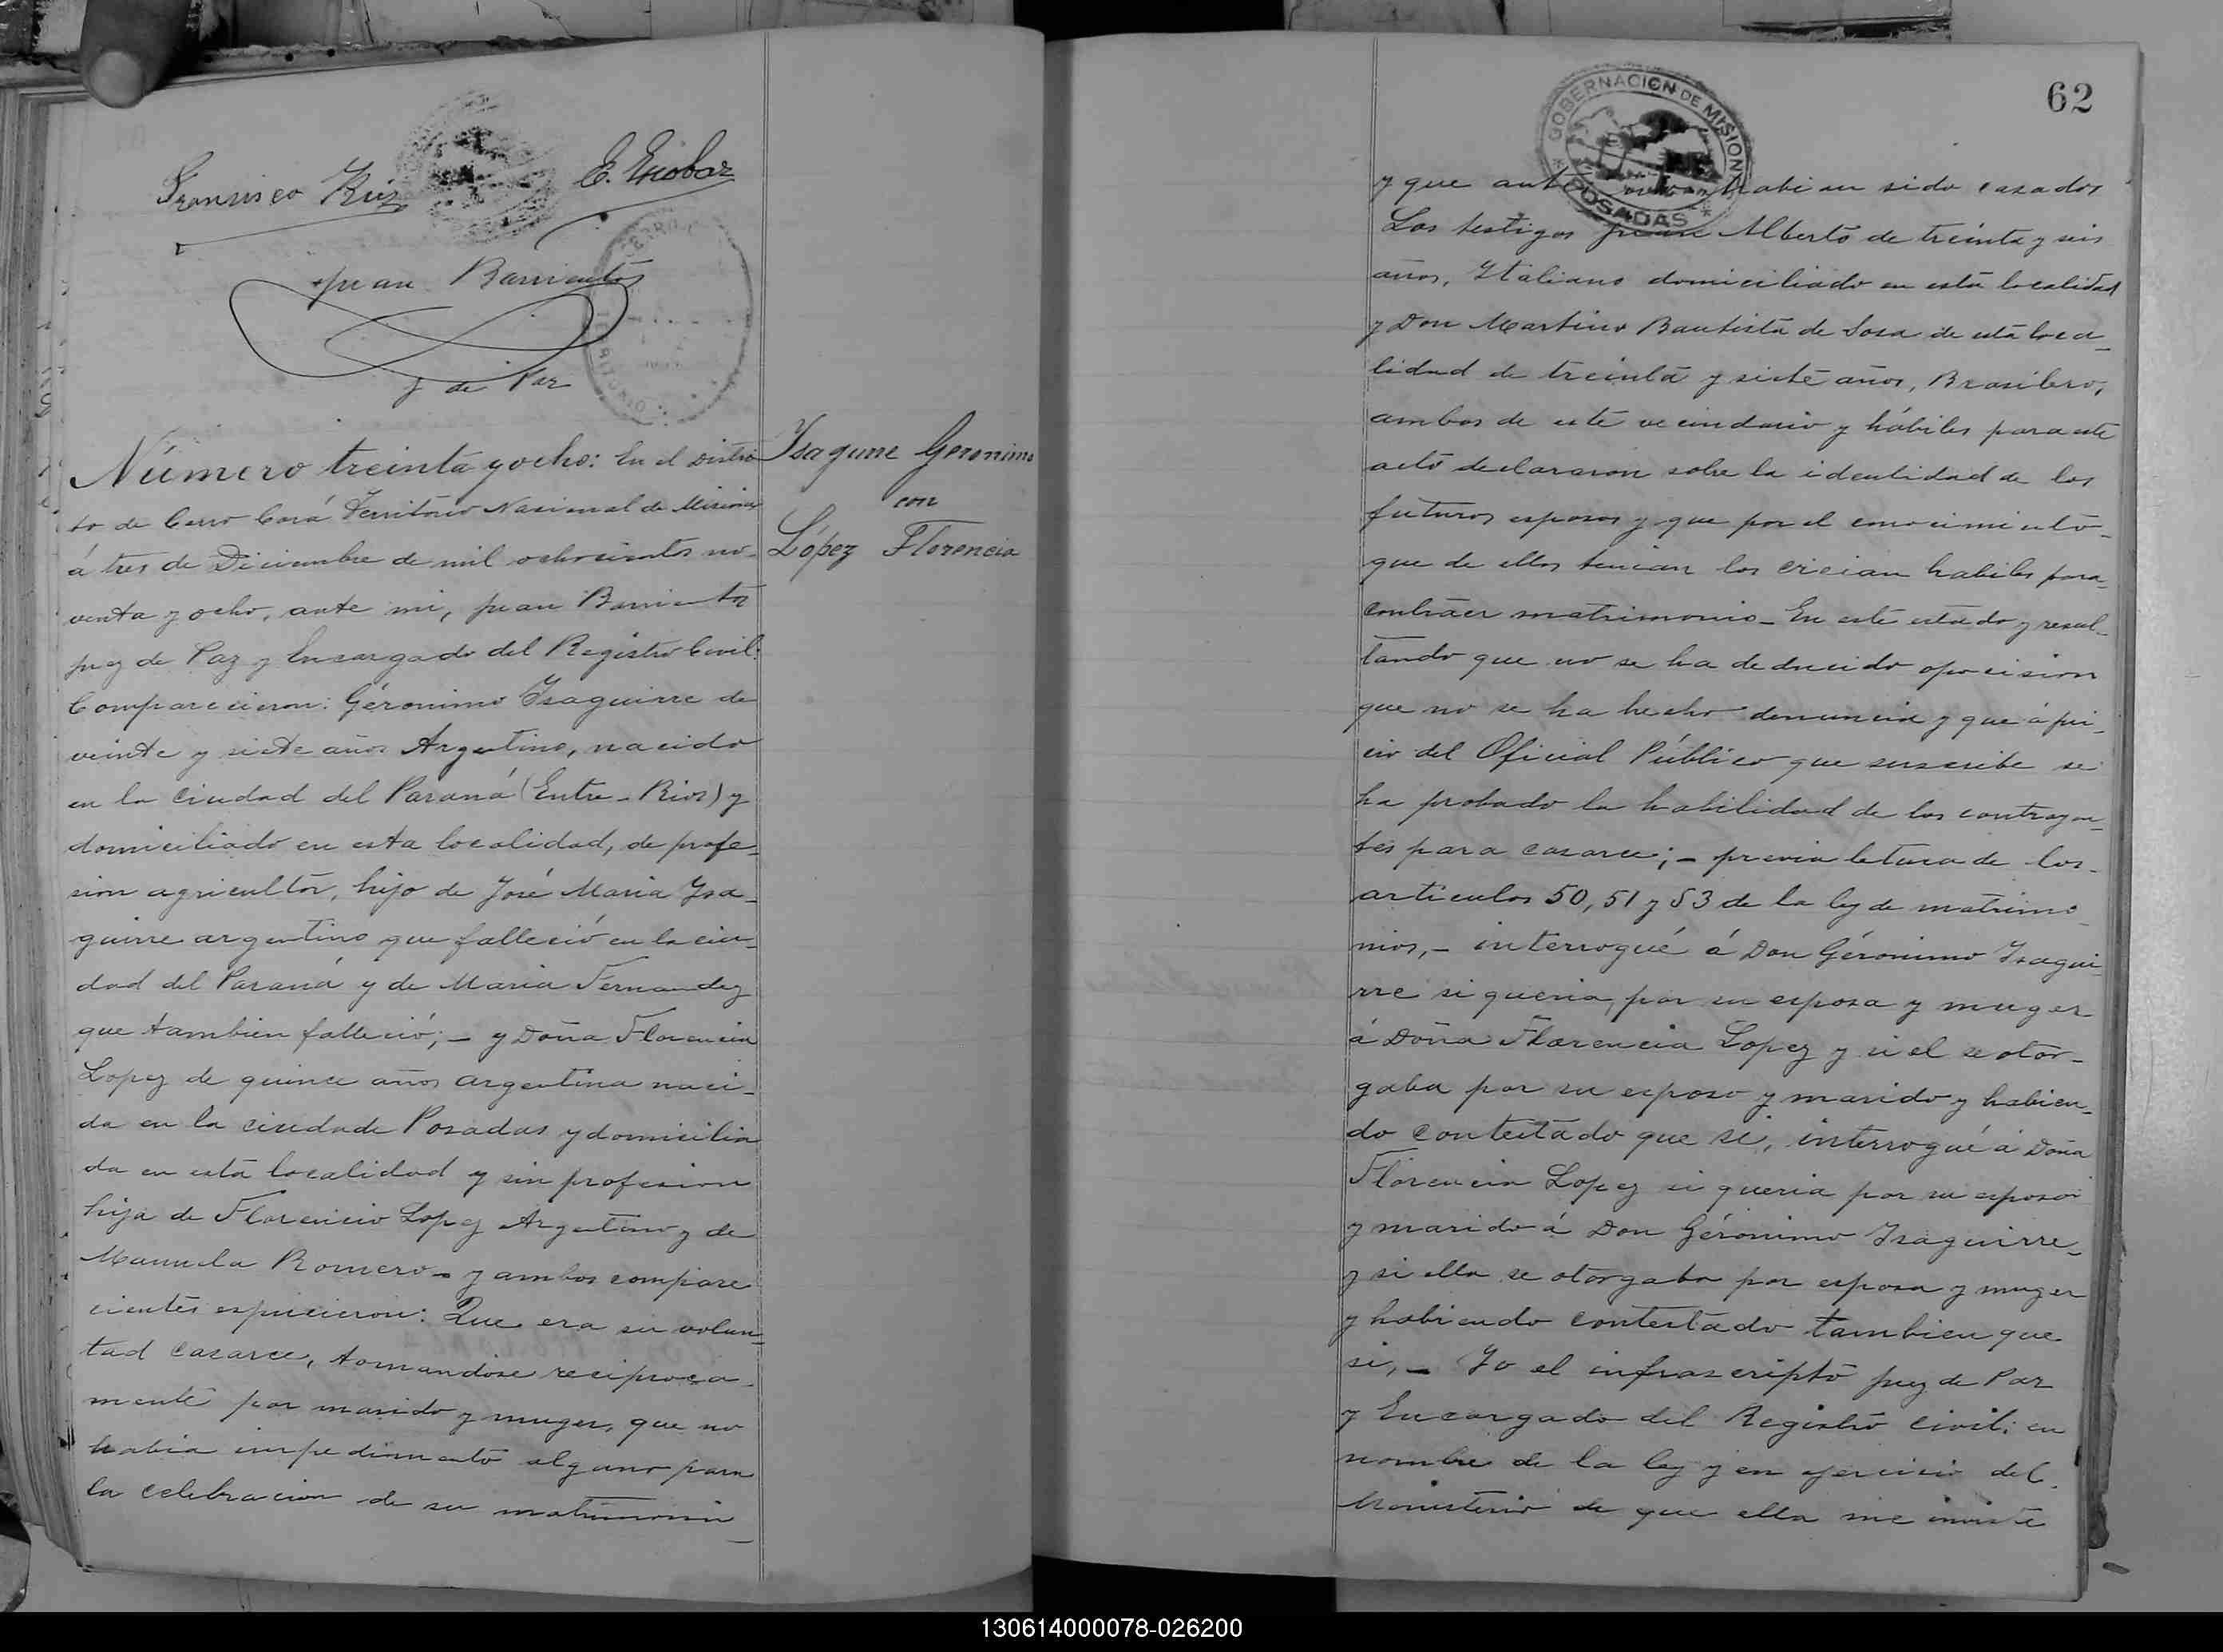 Francisco Ruiz
E. Escobar
Juan Barrientos
J de Paz
Número treinta y ocho: En el Distri
to de Cerro Corá Territorio Nacional de Misiones
á tres de Diciembre de mil ochocientos no-
venta y ocho, ante mi, Juan Barrientos
Juez de Paz y Encargado del Registro Civil:
Comparecieron: Gerónimo Ysaguirre de
veinte y siete años Argentino, nacido
en la Ciudad del Paraná (Entre-Rios) y
domiciliado en esta localidad, de profe-
sion agricultor, hijo de José Maria Ysa-
guirre argentino que falleció en la ciu-
dad del Paraná y de Maria Fernandez
que tambien falleció; - y Doña Florencia
Lopez de quince años argentina naci-
da en la ciudad de Posadas y domicilia
da en esta localidad y sin profesion
hija de Florencio Lopez Argentino y de
Manuela Romero - y ambos compare
cientes espucieron: Que era su volun-
tad casarce, tomandose reciproca-
mente por marido y muger, que no
habia impedimento alguno para
la celebracion de su matrimonio
Ysagurre Geronimo
con
López Florencia
62
GOBERNACION DE MISIONES
POSADAS
y que antes habian sido casados
Los testigos Juan Alberto de treinta y seis
años, Ytaliano domiciliado en esta localidad
y Don Martino Bautista de Sosa de esta loca-
lidad de treinta y siete años, Brasilero,
ambos de este vecindario y hábiles para este
acto declararon sobre la identidad de los
futuros esposos y que por el conocimiento-
que de ellos tenian los creian habiles para-
contraer matrimonio - En este estado y resul-
tando que no se ha deducido oposicion
que no se ha hecho denuncia y que á jui-
cio del Oficial Público que suscribe se
ha probado la habilidad de los contrayen-
tes para casarce; - previa letura de los-
articulos 50, 51 y 53 de la ley de matrimo-
nios, - interrogué á Don Gerónimo Ysagui
rre si queria por su esposa y muger
á Doña Florencia Lopez y si el se otor-
gaba por su esposo y marido y habien-
do contestado que si, interrogué á Doña
Florencia Lopez si queria por su esposo
y marido á Don Gerónimo Ysaguirre-
y si ella se otorgaba por esposa y muger
y habiendo contestado tambien que
si, - Yo el infrascripto Juez de Paz
y Encargado del Registro Civil: en
nombre de la ley y en ejercicio del
Ministerio de que ella me inviste
130614000078-026200